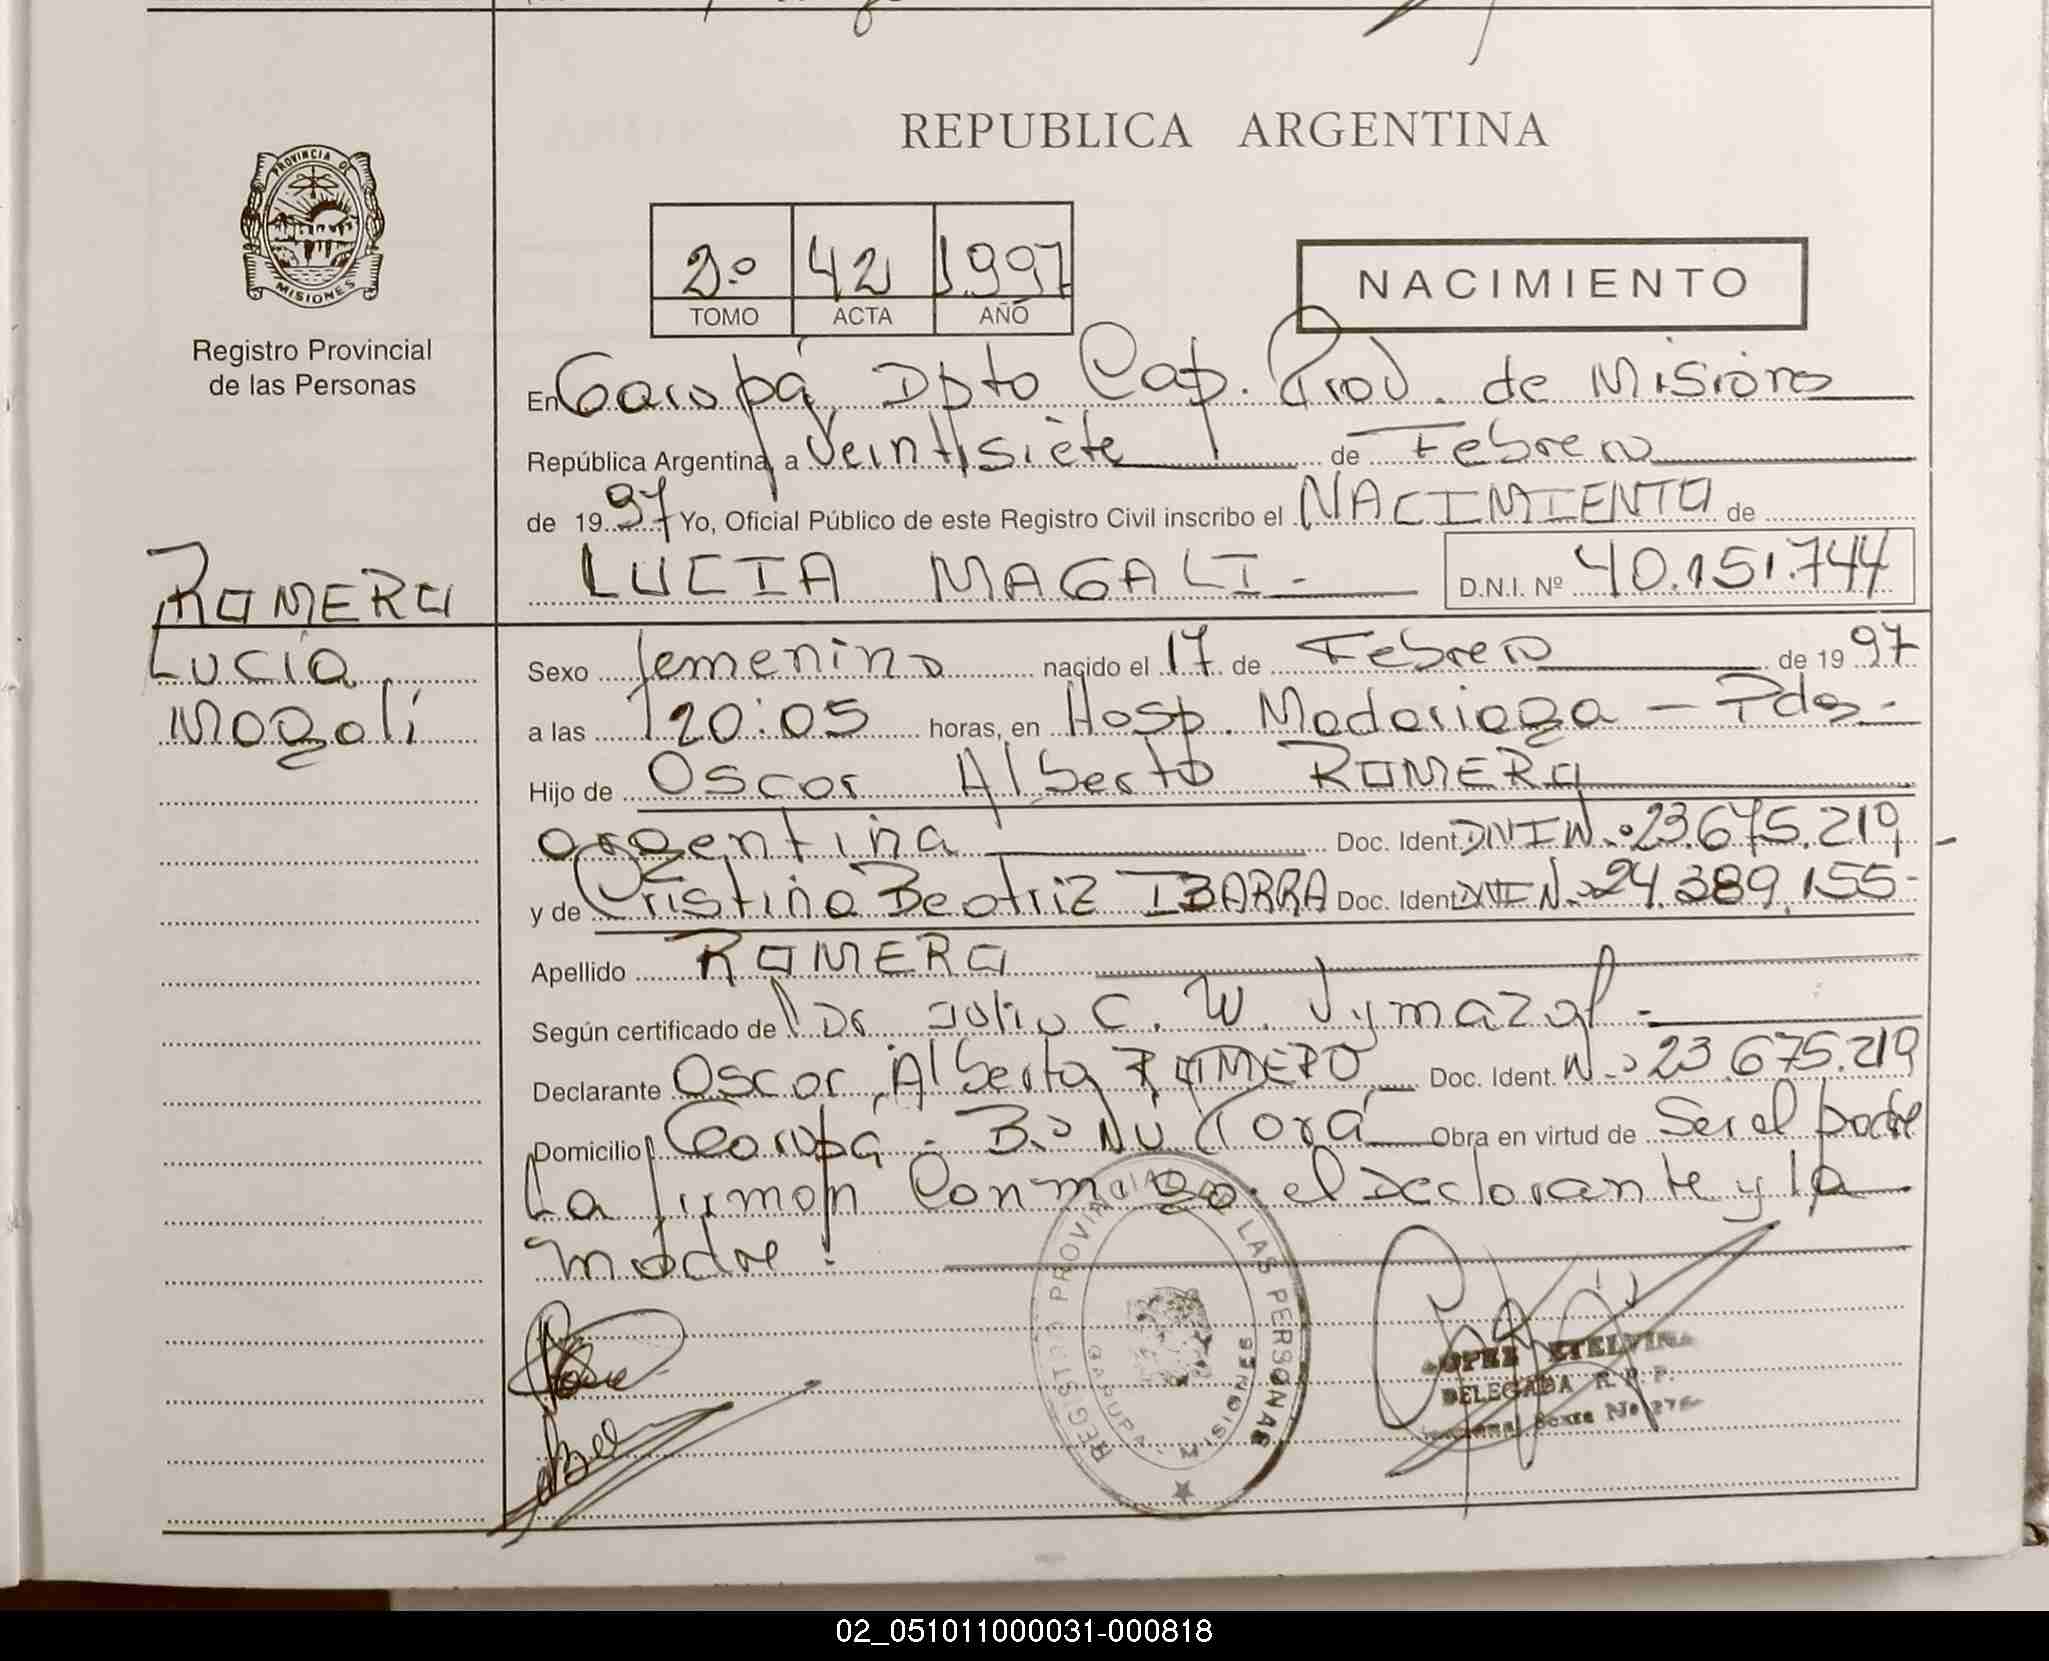 REPUBLICA ARGENTINA
PROVINCIA DE
MISIONES
Registro Provincial
de las Personas
2º 42 1.997
TOMO ACTA AÑO
NACIMIENTO
En Garupá Dpto Cap. Prov. de Misiones
República Argentina, a Veintisiete de Febrero
de 1997 Yo, Oficial Público de este Registro Civil inscribo el NACIMIENTO de
LUCIA MAGALI.- D.N.I. Nº 40.151.744
ROMERO
Lucía
Magalí
Sexo femenino nacido el 17 de Febrero de 1997
a las 20:05 horas, en Hosp. Madariaga - Pdas.-
Hijo de Oscar Alberto ROMERO
argentina Doc. Ident. DNI Nº 23.675.219.-
y de Cristina Beatriz IBARRA Doc. Ident. DNI Nº 24.389.155-
Apellido ROMERO
Según certificado de Dr. Julio C. W.
Declarante Oscar Alberto ROMERO Doc. Ident. Nº 23.675.219
Domicilio Garupá - Bº Ñu Porá Obra en virtud de Ser el padre
La firman Conmigo el Declarante y la
madre.
REGISTRO PROVINCIAL DE LAS PERSONAS
GARUPA - MISIONES
LOPEZ ETELVINA
DELEGADA R. P. P.
02_051011000031-000818